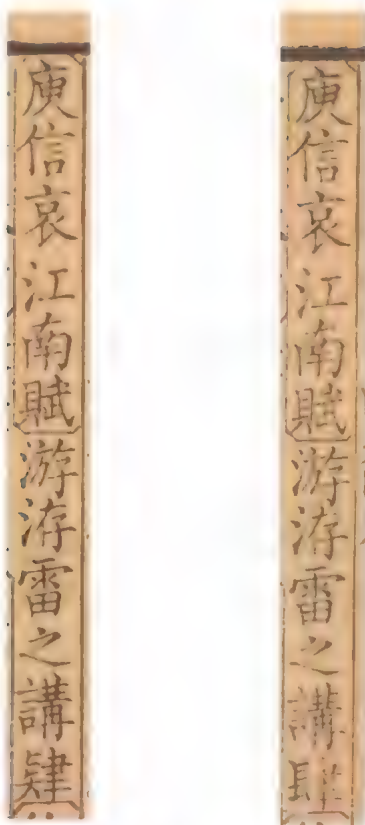 庾信哀江南賦游洊雷之講肆
庾信哀江南賦游洊雷之講肄